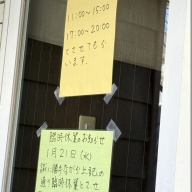 11:00〜15:00
17:00〜20:00
とさせてもら
います。
臨時休業のお知らせ
1月21日(水)
誠に勝手ながら上記の
通り臨時休業とさせ